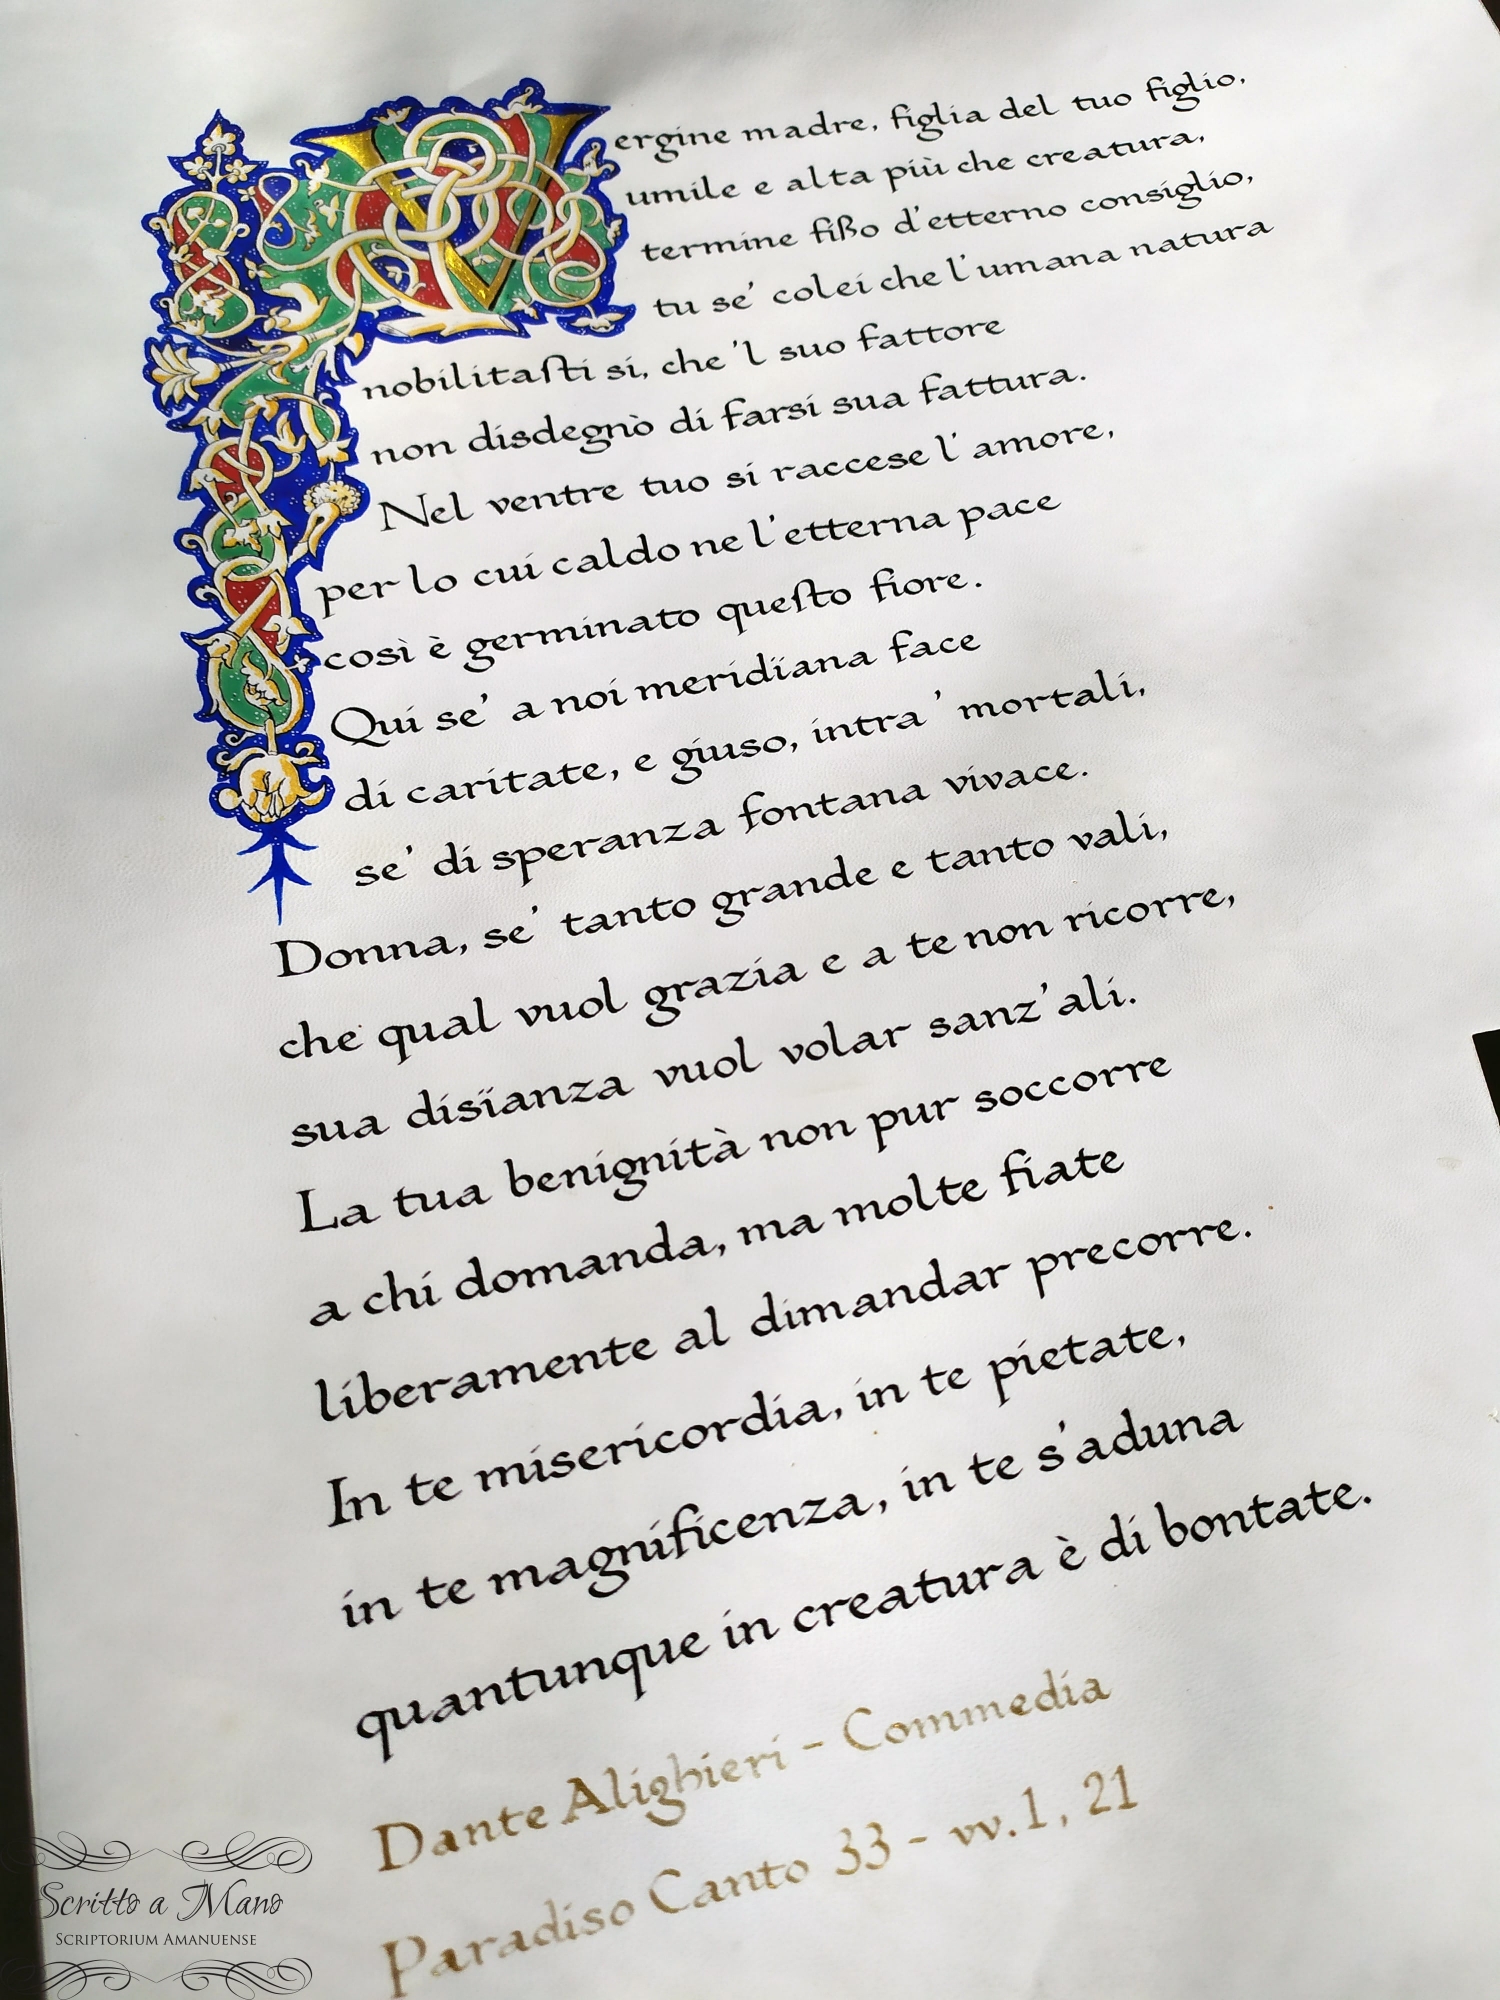 Vergine madre, figlia del tuo figlio,
umile e alta più che creatura,
termine fißo d'etterno consiglio,
tu se' colei che l'umana natura
nobilitaſti si, che 'l suo fattore
non disdegnò di farsi sua fattura.
Nel ventre tuo si raccese l'amore,
per lo cui caldo ne l'etterna pace
così è germinato queſto fiore.
Qui se' a noi meridïana face
di caritate, e giuso, intra ' mortali,
se' di speranza fontana vivace.
Donna, se' tanto grande e tanto vali,
che qual vuol grazia e a te non ricorre,
sua disïanza vuol volar sanz'ali.
La tua benignità non pur soccorre
a chi domanda, ma molte fiate
liberamente al dimandar precorre.
In te misericordia, in te pietate,
in te magnificenza, in te s'aduna
quantunque in creatura è di bontate.
Dante Alighieri - Commedia
Paradiso Canto 33 - vv. 1, 21
Scritto a Mano
Scriptorium Amanuense